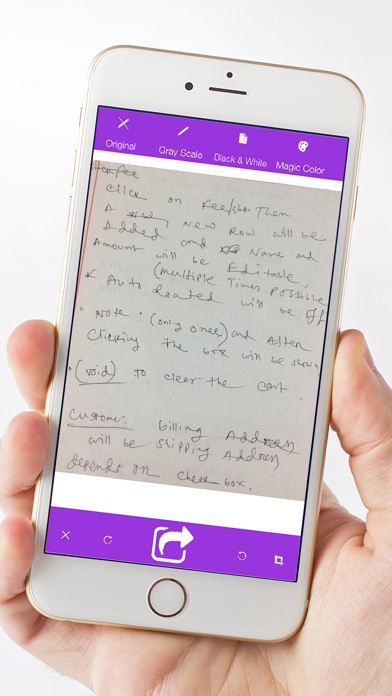 Original
Gray Scale
Black & White
Magic Color
click on Fee/show Them
A new Row will be
Added and Name and
Amount will be Editable,
(multiple Times possible
Auto Roated will be off
Note: (only once) and After
Clicking the box will be shown
(void) To clear the cart.
Customer: billing Address
will be shipping Address
dependt on check box.